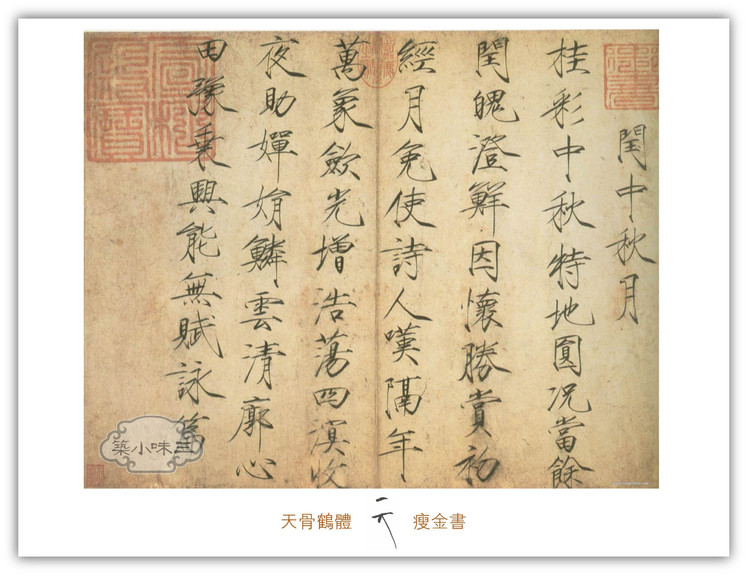 閏中秋月
桂彩中秋特地圓況當餘
閏魄澄鮮因懷勝賞初
經月免使詩人嘆隔年
萬象歛光增浩蕩四溟收
夜助嬋娟鱗雲清廓心
田豫乘興能無賦詠篇
三味小築
天骨鶴體
瘦金書